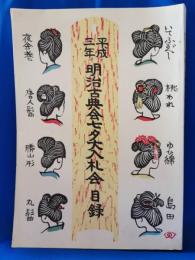 平成
三年
明治古典会七夕大入札会目録
いてふがへし
桃われ
ゆひ綿
島田
夜会巻
唐人髷
勝山形
丸髷